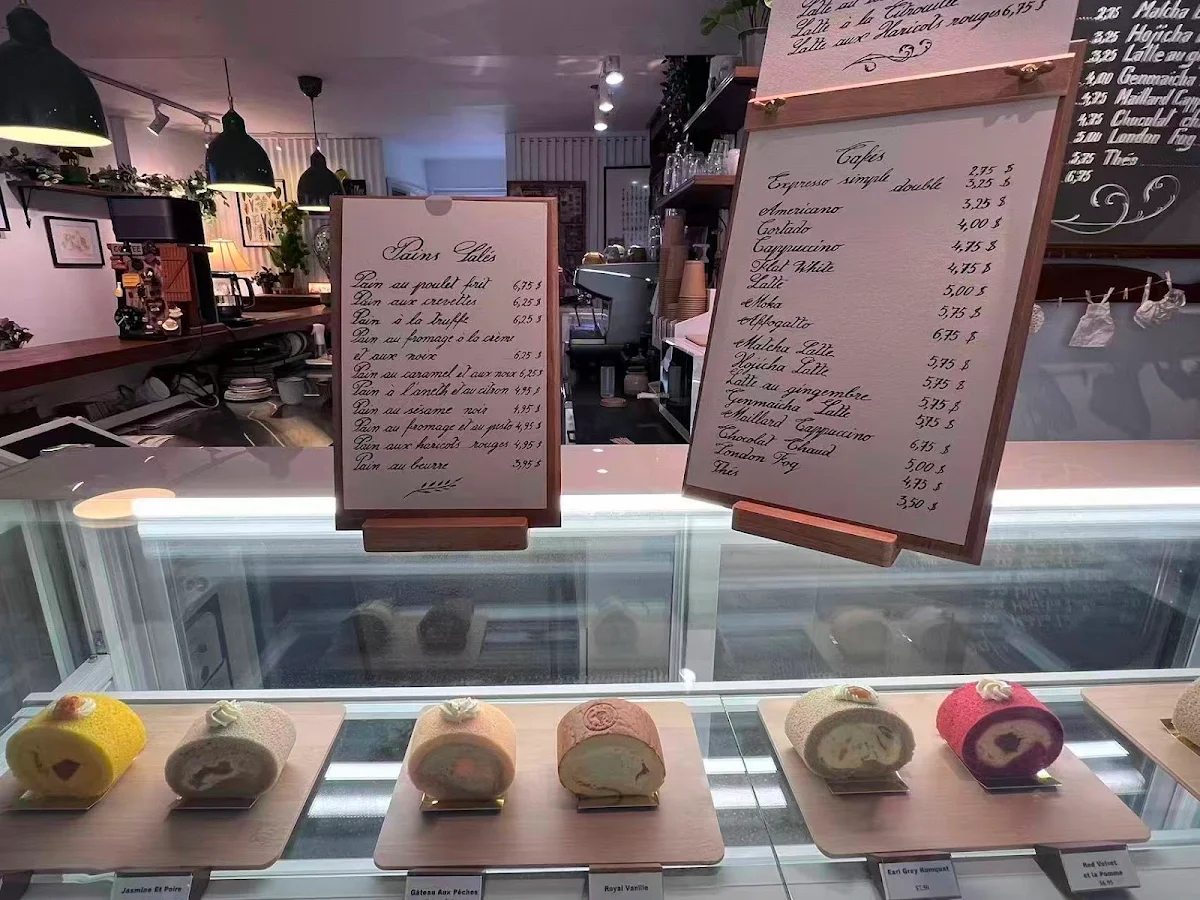 Latte à la Citrouille
Latte aux Haricots rouges 6,75 $
Pains Salés
Pain au poulet frit 6,75 $
Pain aux crevettes 6,25 $
Pain à la truffe 6,25 $
Pain au fromage à la crème
et aux noix 6,25 $
Pain au caramel et aux noix 6,25 $
Pain à l'aneth et au citron 4,95 $
Pain au sésame noir 4,95 $
Pain au fromage et au pesto 4,95 $
Pain aux haricots rouges 4,95 $
Pain au beurre 3,95 $
Cafés
Expresso simple 2,75 $
double 3,25 $
Americano 3,25 $
Cortado 4,00 $
Cappuccino 4,75 $
Flat White 4,75 $
Latte 5,00 $
Moka 5,75 $
Affogatto 6,75 $
Matcha Latte 5,75 $
Hojicha Latte 5,75 $
Latte au gingembre 5,75 $
Genmaicha Latte 5,75 $
Maillard Cappuccino 6,75 $
Chocolat Chaud 5,00 $
London Fog 4,75 $
Thés 3,50 $
Matcha
3,25 Hojicha
3,25 Latte au
4,00 Genmaicha
4,75 Maillard
4,75 Chocolat
5,00 London Fog
Thés
6,75
Jasmine Et Poire
Gâteau Aux Pêches
Royal Vanille
Earl Grey Kumquat
$7.50
Red Velvet
et la Pomme
$6.95